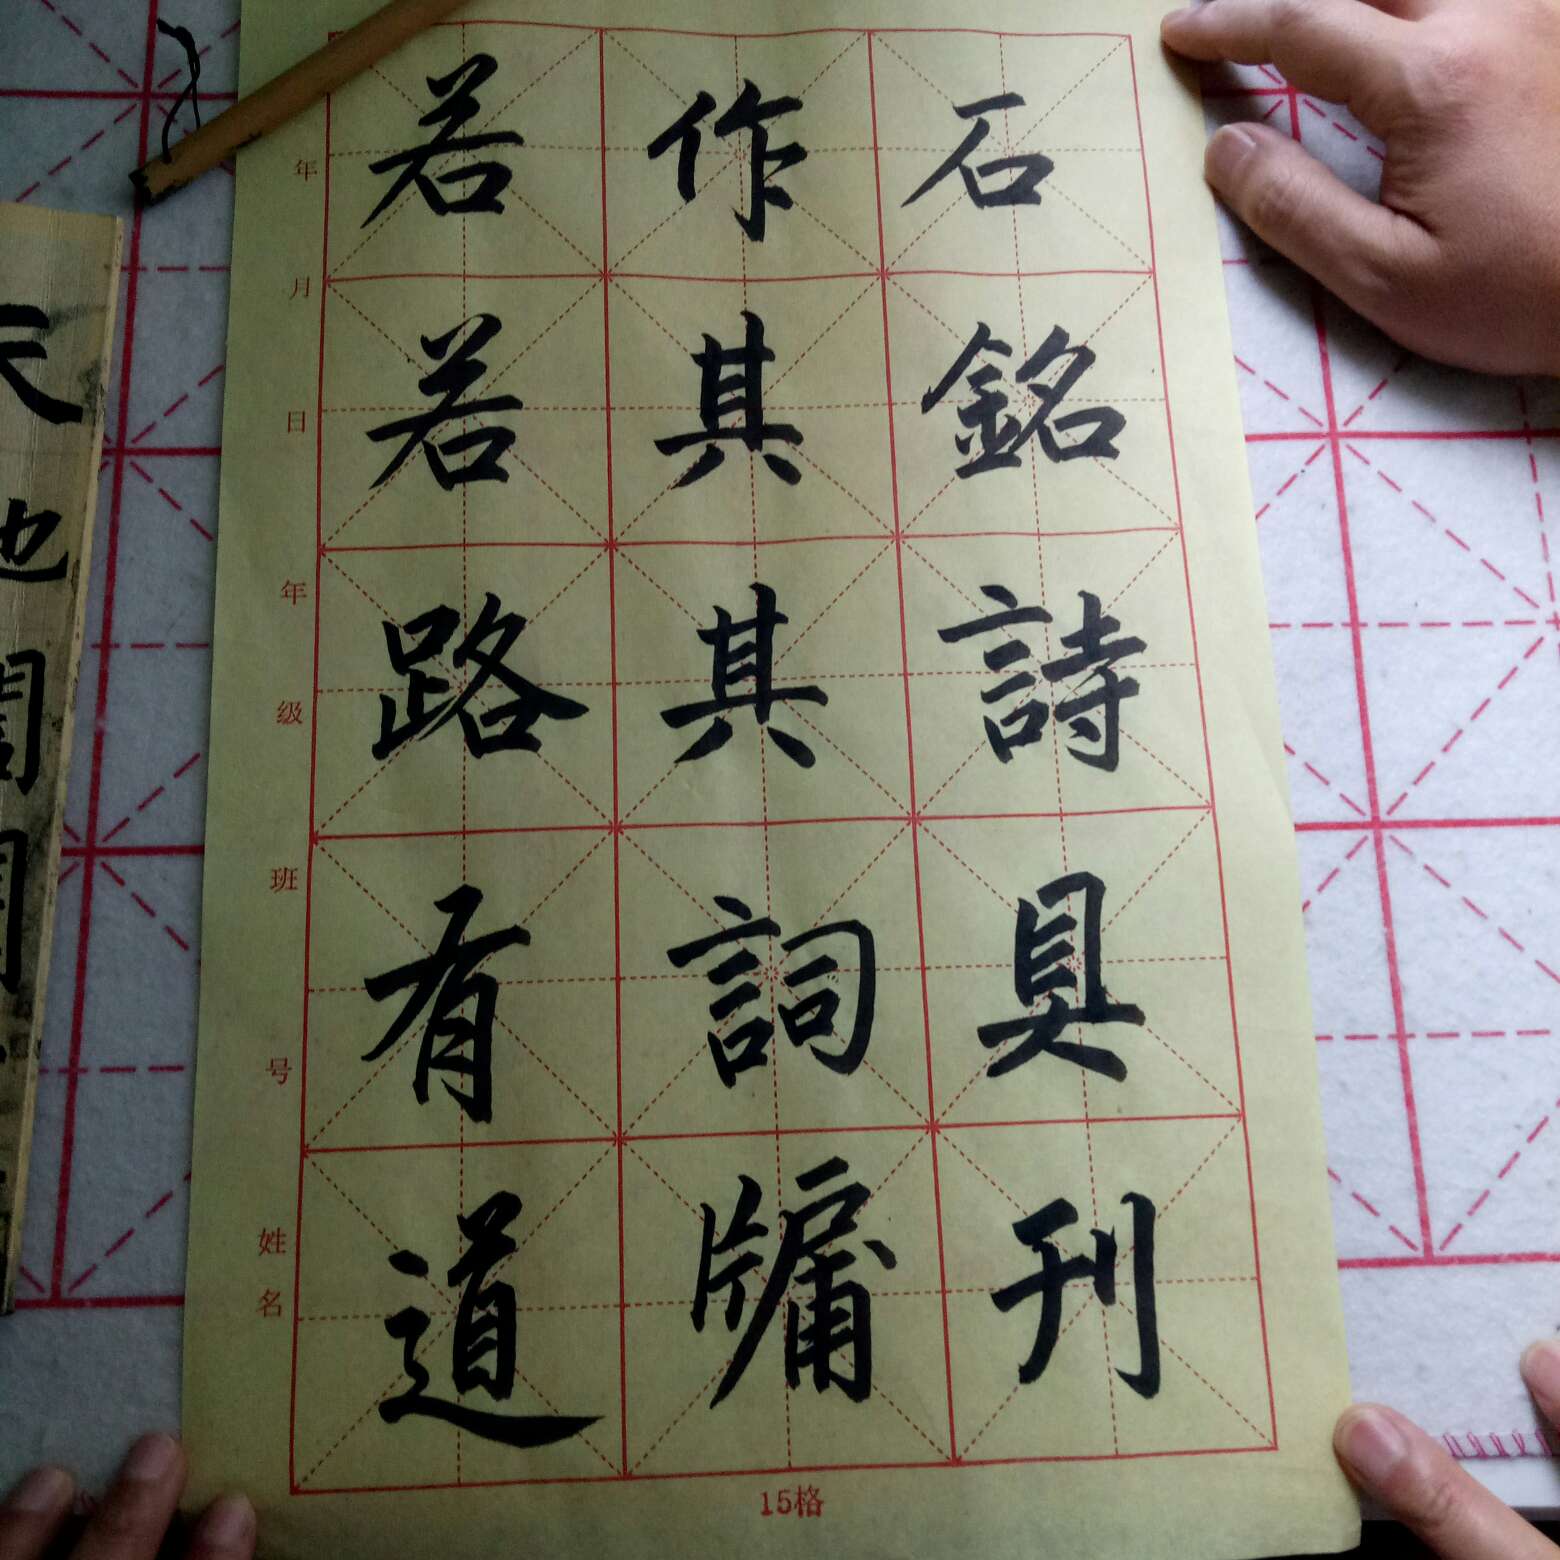 石銘詩具刊
作其其詞牖
若若路有道
年月日年级班号姓名
15格
天